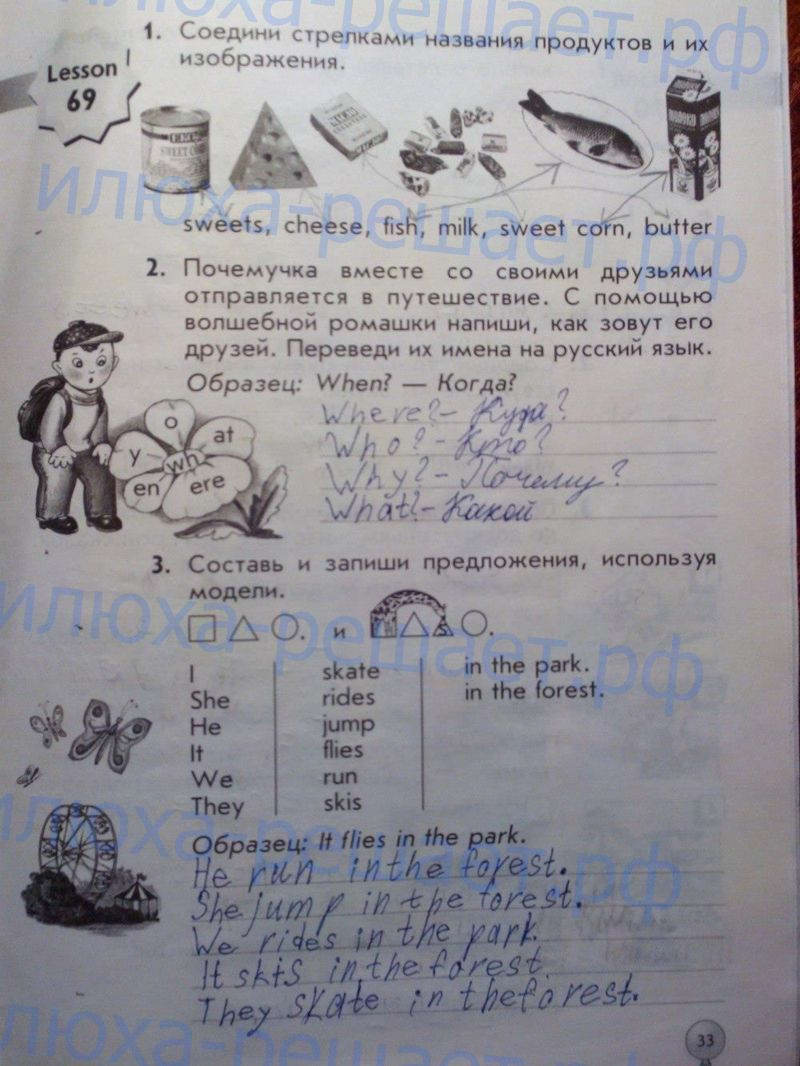 илюха-решает.рф
1. Соедини стрелками названия продуктов и их
изображения.
Lesson
69
SWEET CORN
МОЛОКО
илюха-решает.рф
sweets, cheese, fish, milk, sweet corn, butter
2. Почемучка вместе со своими друзьями
отправляется в путешествие. С помощью
волшебной ромашки напиши, как зовут его
друзей. Переведи их имена на русский язык.
Образец: When? — Когда?
o
at
y
wh
en
ere
Where?- Куда?
Who?- Кто?
Why?- Почему?
What?- Какой
3. Составь и запиши предложения, используя
модели.
илюха-решает.рф
и
I skate in the park.
She rides in the forest.
He jump
It flies
We run
They skis
Образец: It flies in the park.
илюха-решает.рф
He run in the forest.
She jump in the forest.
We rides in the park.
It skis in the forest.
They skate in the forest.
илюха-решает.рф
33